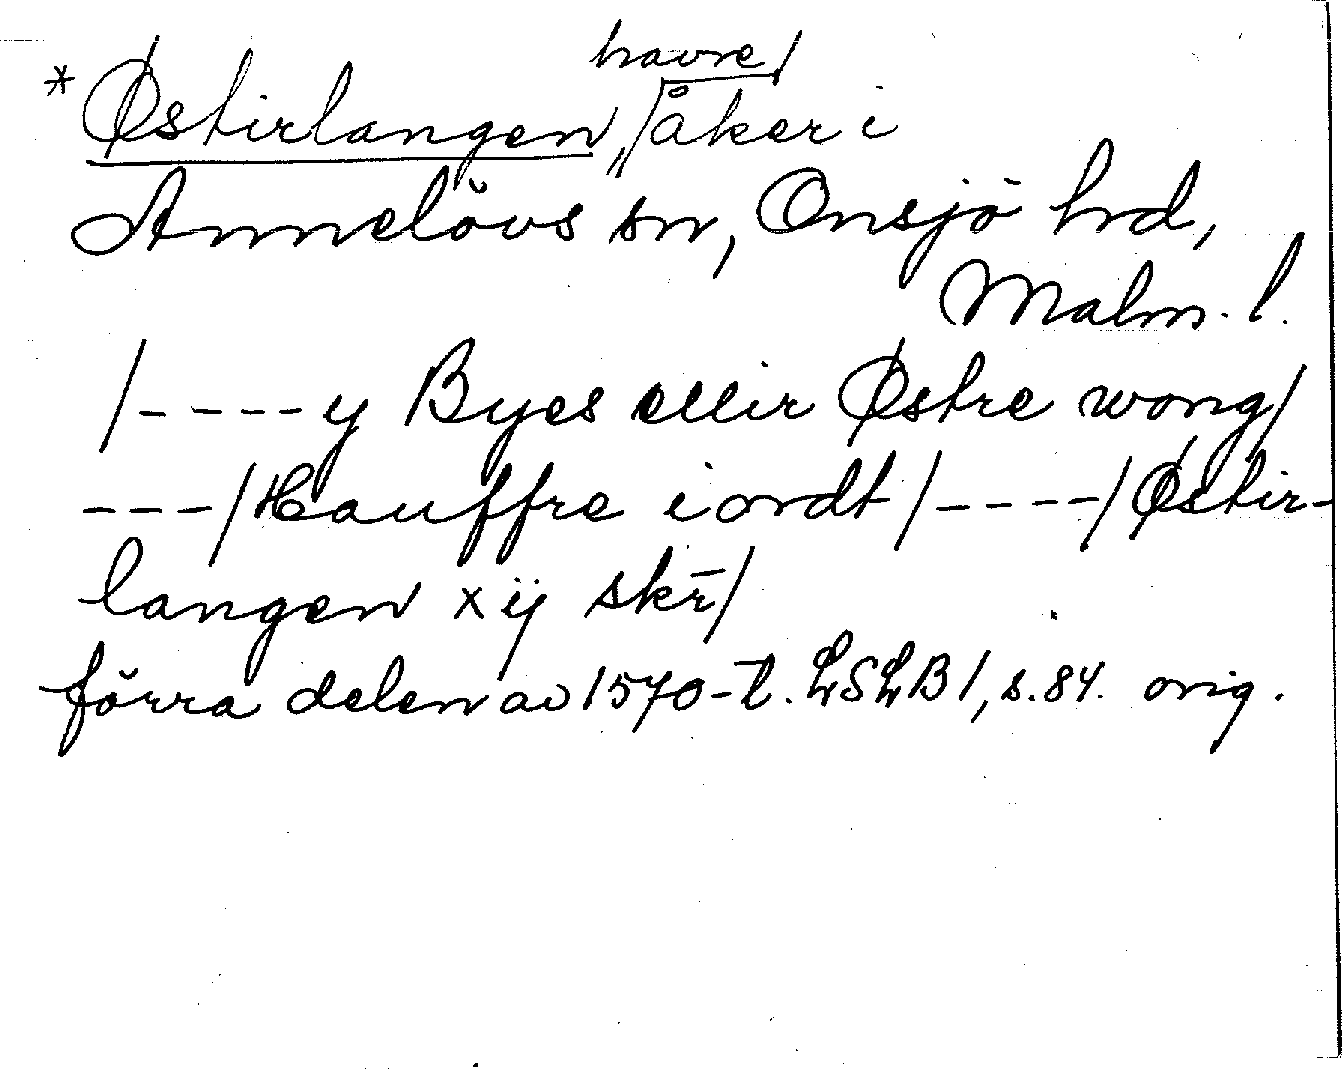 havre/
* Østirlangen, /åker i
Annelövs sn, Onsjö hrd,
Malm. l.
/----y Byes ellir Østre wong/
---/Hauffre iordt/----/Østir-
langen xij skr̄/
förra delen av 1570-t. LSLB1, s.84. orig.